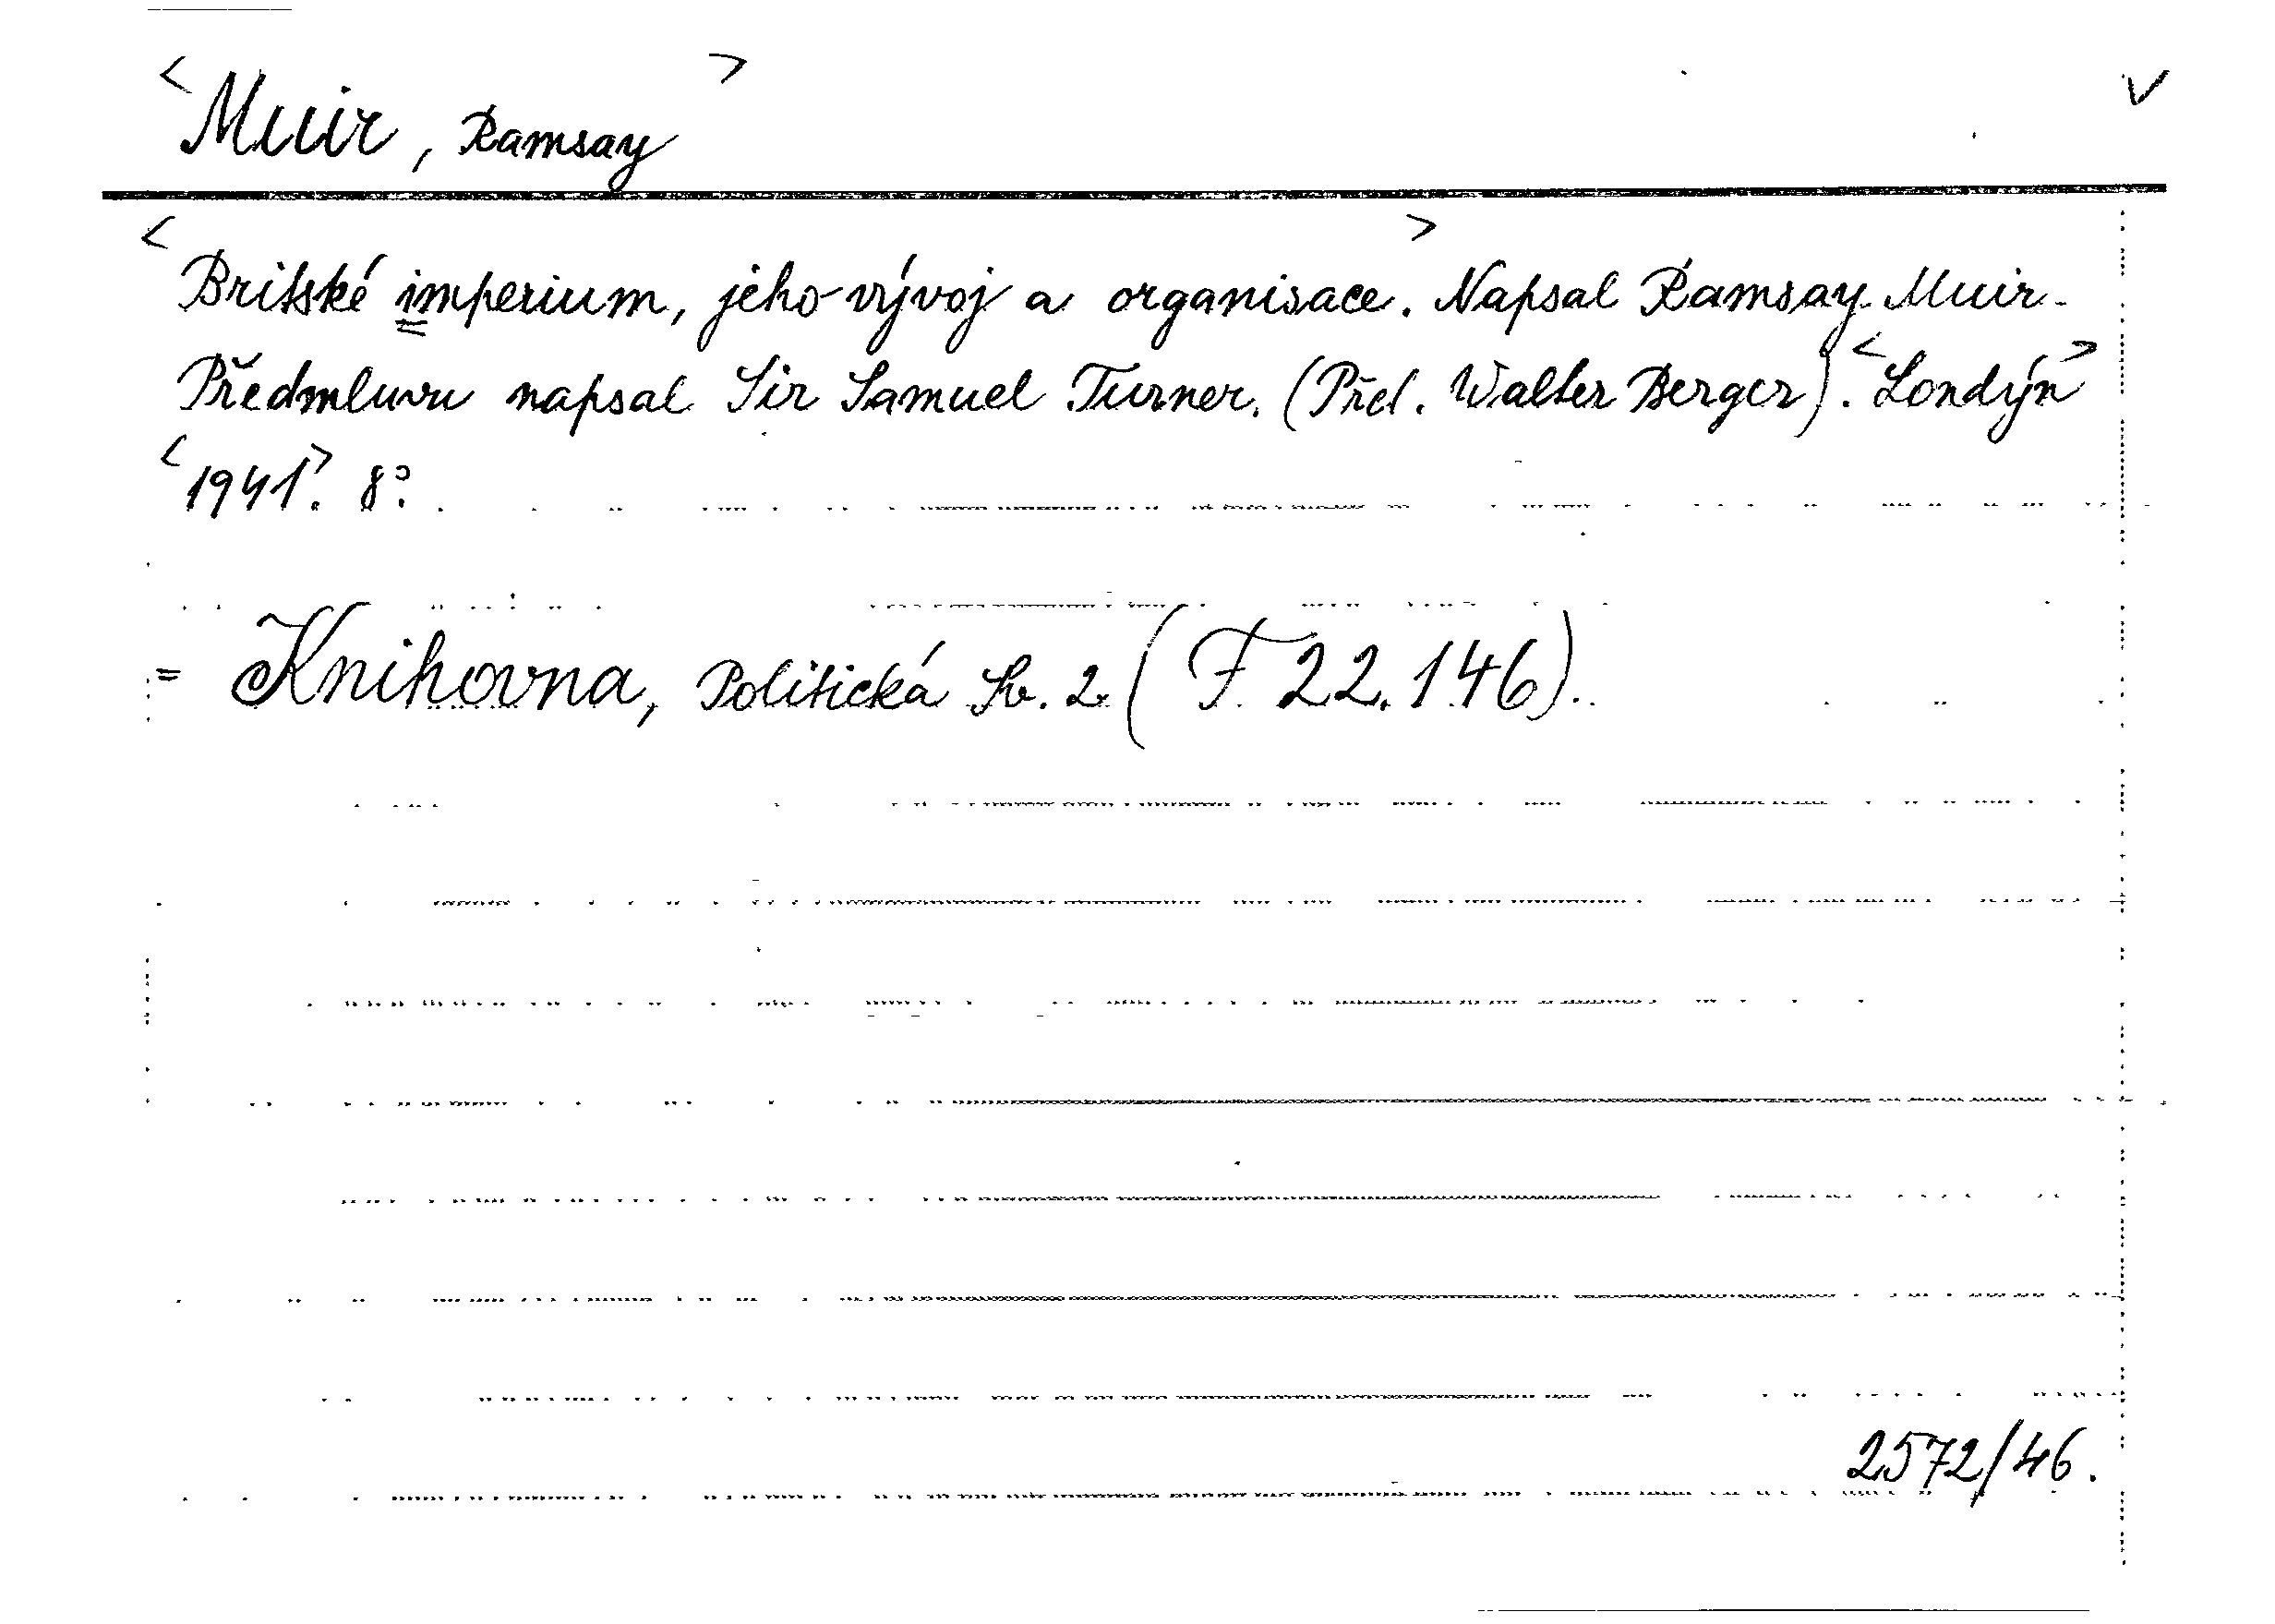 <Muir, Ramsay> v
<Britské imperium, jeho vývoj a organisace.> Napsal Ramsay Muir.
Předmluvu napsal Sir Samuel Turner. (Přel. Walter Berger). <Londýn>
<1941>. 8°.
= Knihovna, Politická Sv. 2. (F 22.146).
2572/46.